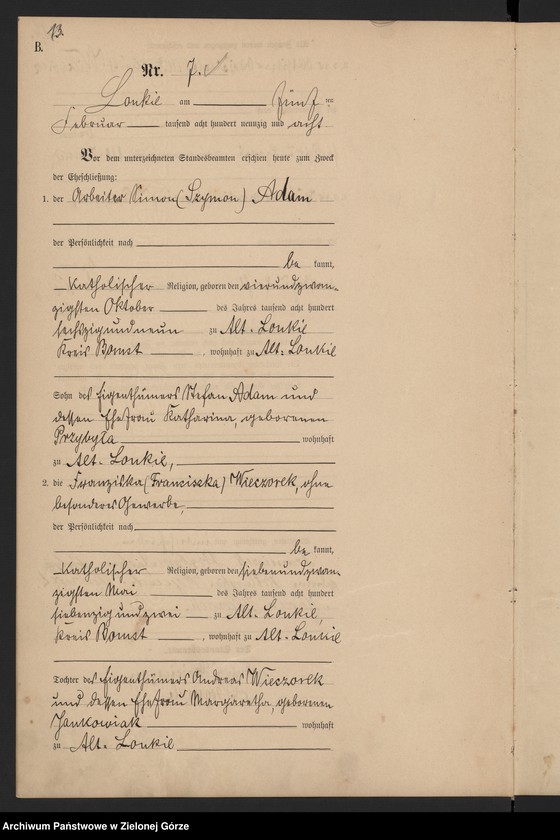 13.
B.
Nr. 7.
Lonkie am fünf ten
Februar tausend acht hundert neunzig und acht
Vor dem unterzeichneten Standesbeamten erschien heute zum Zweck
der Eheschließung:
1. der Arbeiter Simon (Szymon) Adam
der Persönlichkeit nach
be kannt,
Katholischer Religion, geboren den vierundzwan-
zigsten Oktober des Jahres tausend acht hundert
sechszigundneun zu Alt-Lonkie
Kreis Bomst, wohnhaft zu Alt-Lonkie
Sohn des Eigenthümers Stefan Adam und
dessen Ehefrau Katharina, geborenen
Przybyła wohnhaft
zu Alt-Lonkie,
2. die Franziska (Franciszka) Wieczorek, ohne
besonderes Gewerbe,
der Persönlichkeit nach
be kannt,
Katholischer Religion, geboren den siebenundzwan-
zigsten Mai des Jahres tausend acht hundert
siebenzig und zwei zu Alt-Lonkie,
Kreis Bomst, wohnhaft zu Alt-Lonkie
Tochter des Eigenthümers Andreas Wieczorek
und dessen Ehefrau Margaretha, geborenen
Jankowiak wohnhaft
zu Alt-Lonkie
Archiwum Państwowe w Zielonej Górze